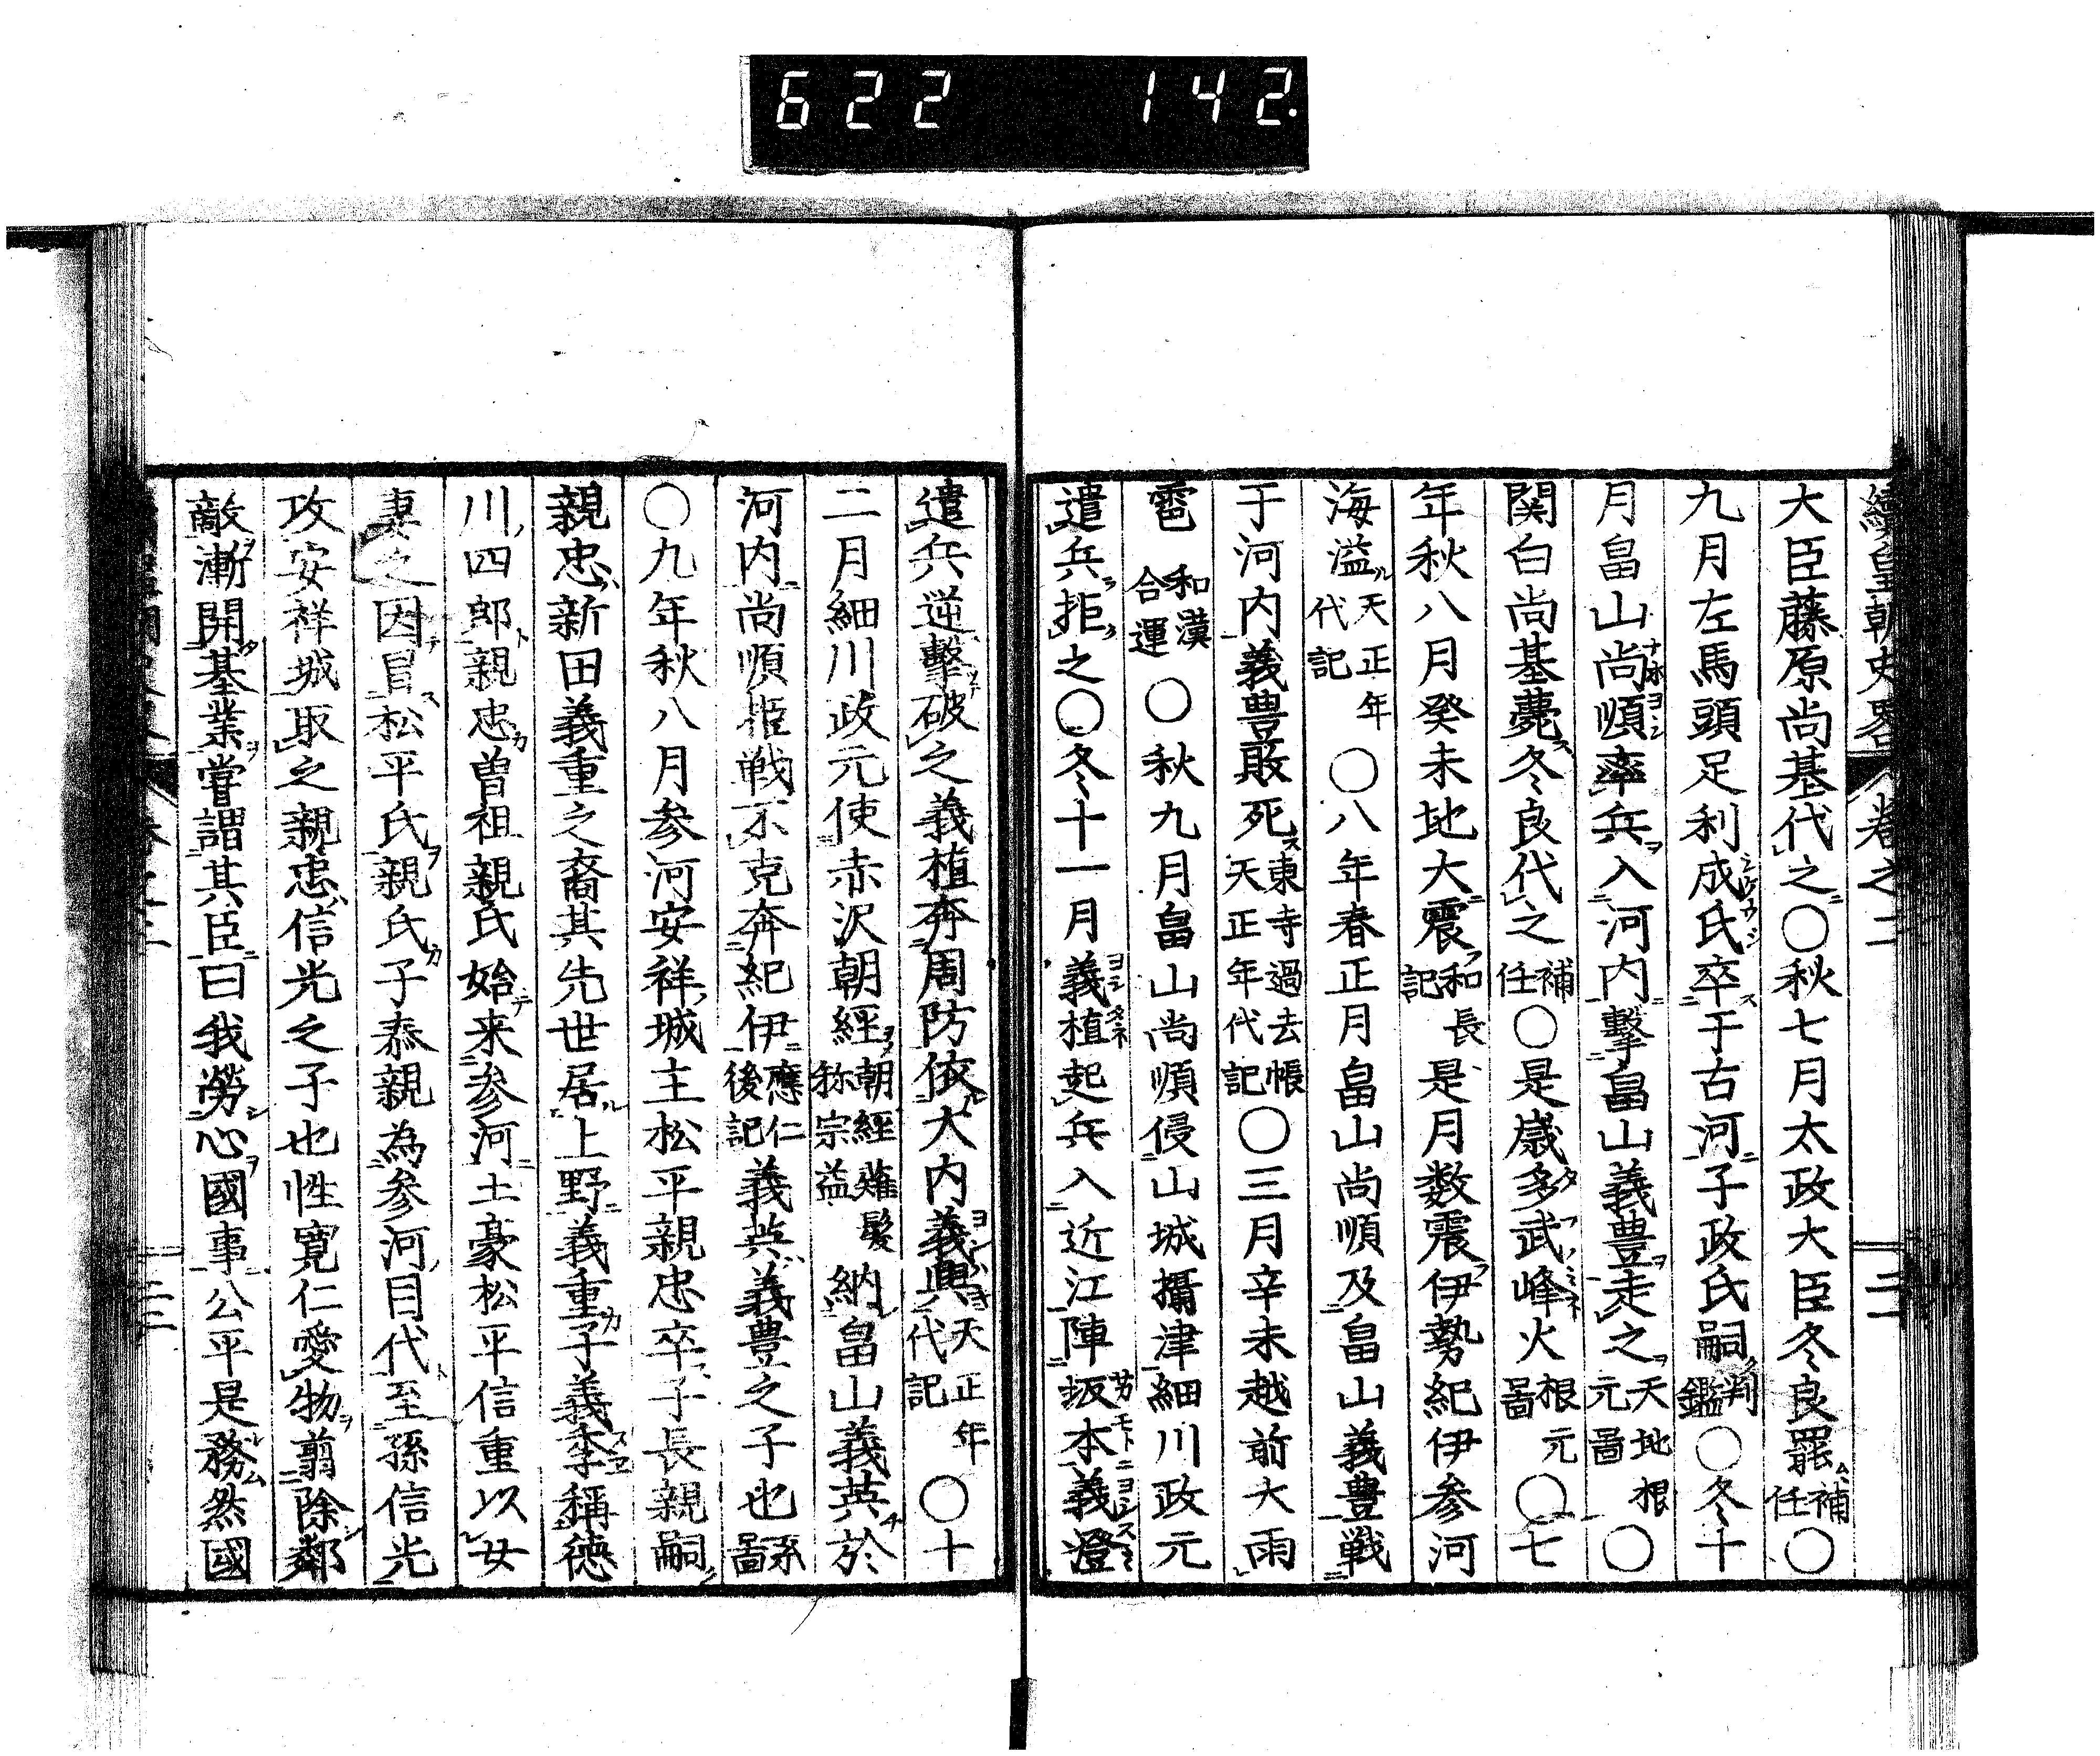 622 142.
續皇朝史畧 卷之二 二
大臣藤原尚基代之〇秋七月太政大臣冬良罷補任〇
九月左馬頭足利成氏卒于古河子政氏嗣判鑑〇冬十
月畠山尚順率兵入河内擊畠山義豊走之天地根元圖〇
関白尚基薨冬良代之補任〇是歳多武峰火根元圖〇七
年秋八月癸未地大震和長記是月数震伊勢紀伊参河
海溢天正年代記〇八年春正月畠山尚順及畠山義豊戦
于河内義豊敗死東寺過去帳天正年代記〇三月辛未越前大雨
雹和漢合運〇秋九月畠山尚順侵山城攝津細川政元
遣兵拒之〇冬十一月義植起兵入近江陣坂本義澄
遣兵逆擊破之義植奔周防依大内義興天正年代記〇十
二月細川政元使赤沢朝經朝經薙髮称宗益納畠山義英於
河内尚順拒戦不克奔紀伊應仁後記義英義豊之子也系圖
〇九年秋八月参河安祥城主松平親忠卒子長親嗣
親忠新田義重之裔其先世居上野義重子義季稱德
川四郎親忠曽祖親氏始来参河土豪松平信重以女
妻之因冒松平氏親氏子泰親為参河目代至孫信光
攻安祥城取之親忠信光之子也性寛仁愛物翦除鄰
敵漸開基業嘗謂其臣曰我勞心國事公平是務然國